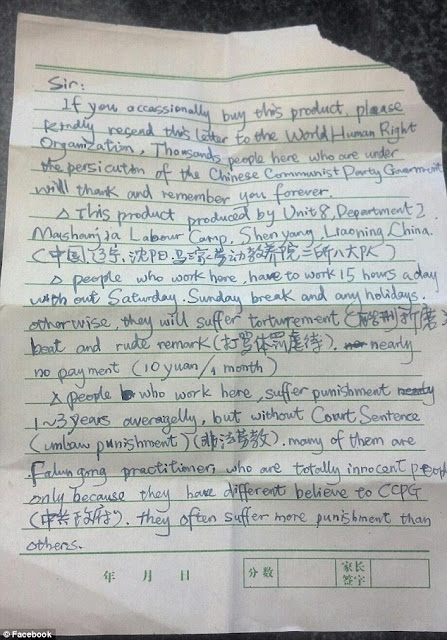 Sir:
If you occassionally buy this product, please
kindly resend this letter to the World Human Right
Organization. Thousands people here who are under
the persicution of the Chinese Communist Party Government
will thank and remember you forever.
△ This product produced by Unit 8, Department 2,
Mashanjia Labour Camp, Shenyang, Liaoning, China.
(中国,辽宁,沈阳,马三家劳动教养院二所八大队)
△ people who work here, have to work 15 hours a day
with out Saturday, Sunday break and any holidays.
otherwise, they will suffer torturement (折磨)
beat and rude remark (打骂体罚虐待). nearly
no payment (10 yuan/1 month)
△ people who work here, suffer punishment
1~3 years averagelly, but without Court Sentence
(unlaw punishment) (非法劳教). many of them are
Falun gong practitioner, who are totally innocent people
only because they have different believe to CCPG
(中共政府). they often suffer more punishment than
others.
年 月 日 分数 家长
签字
© Facebook